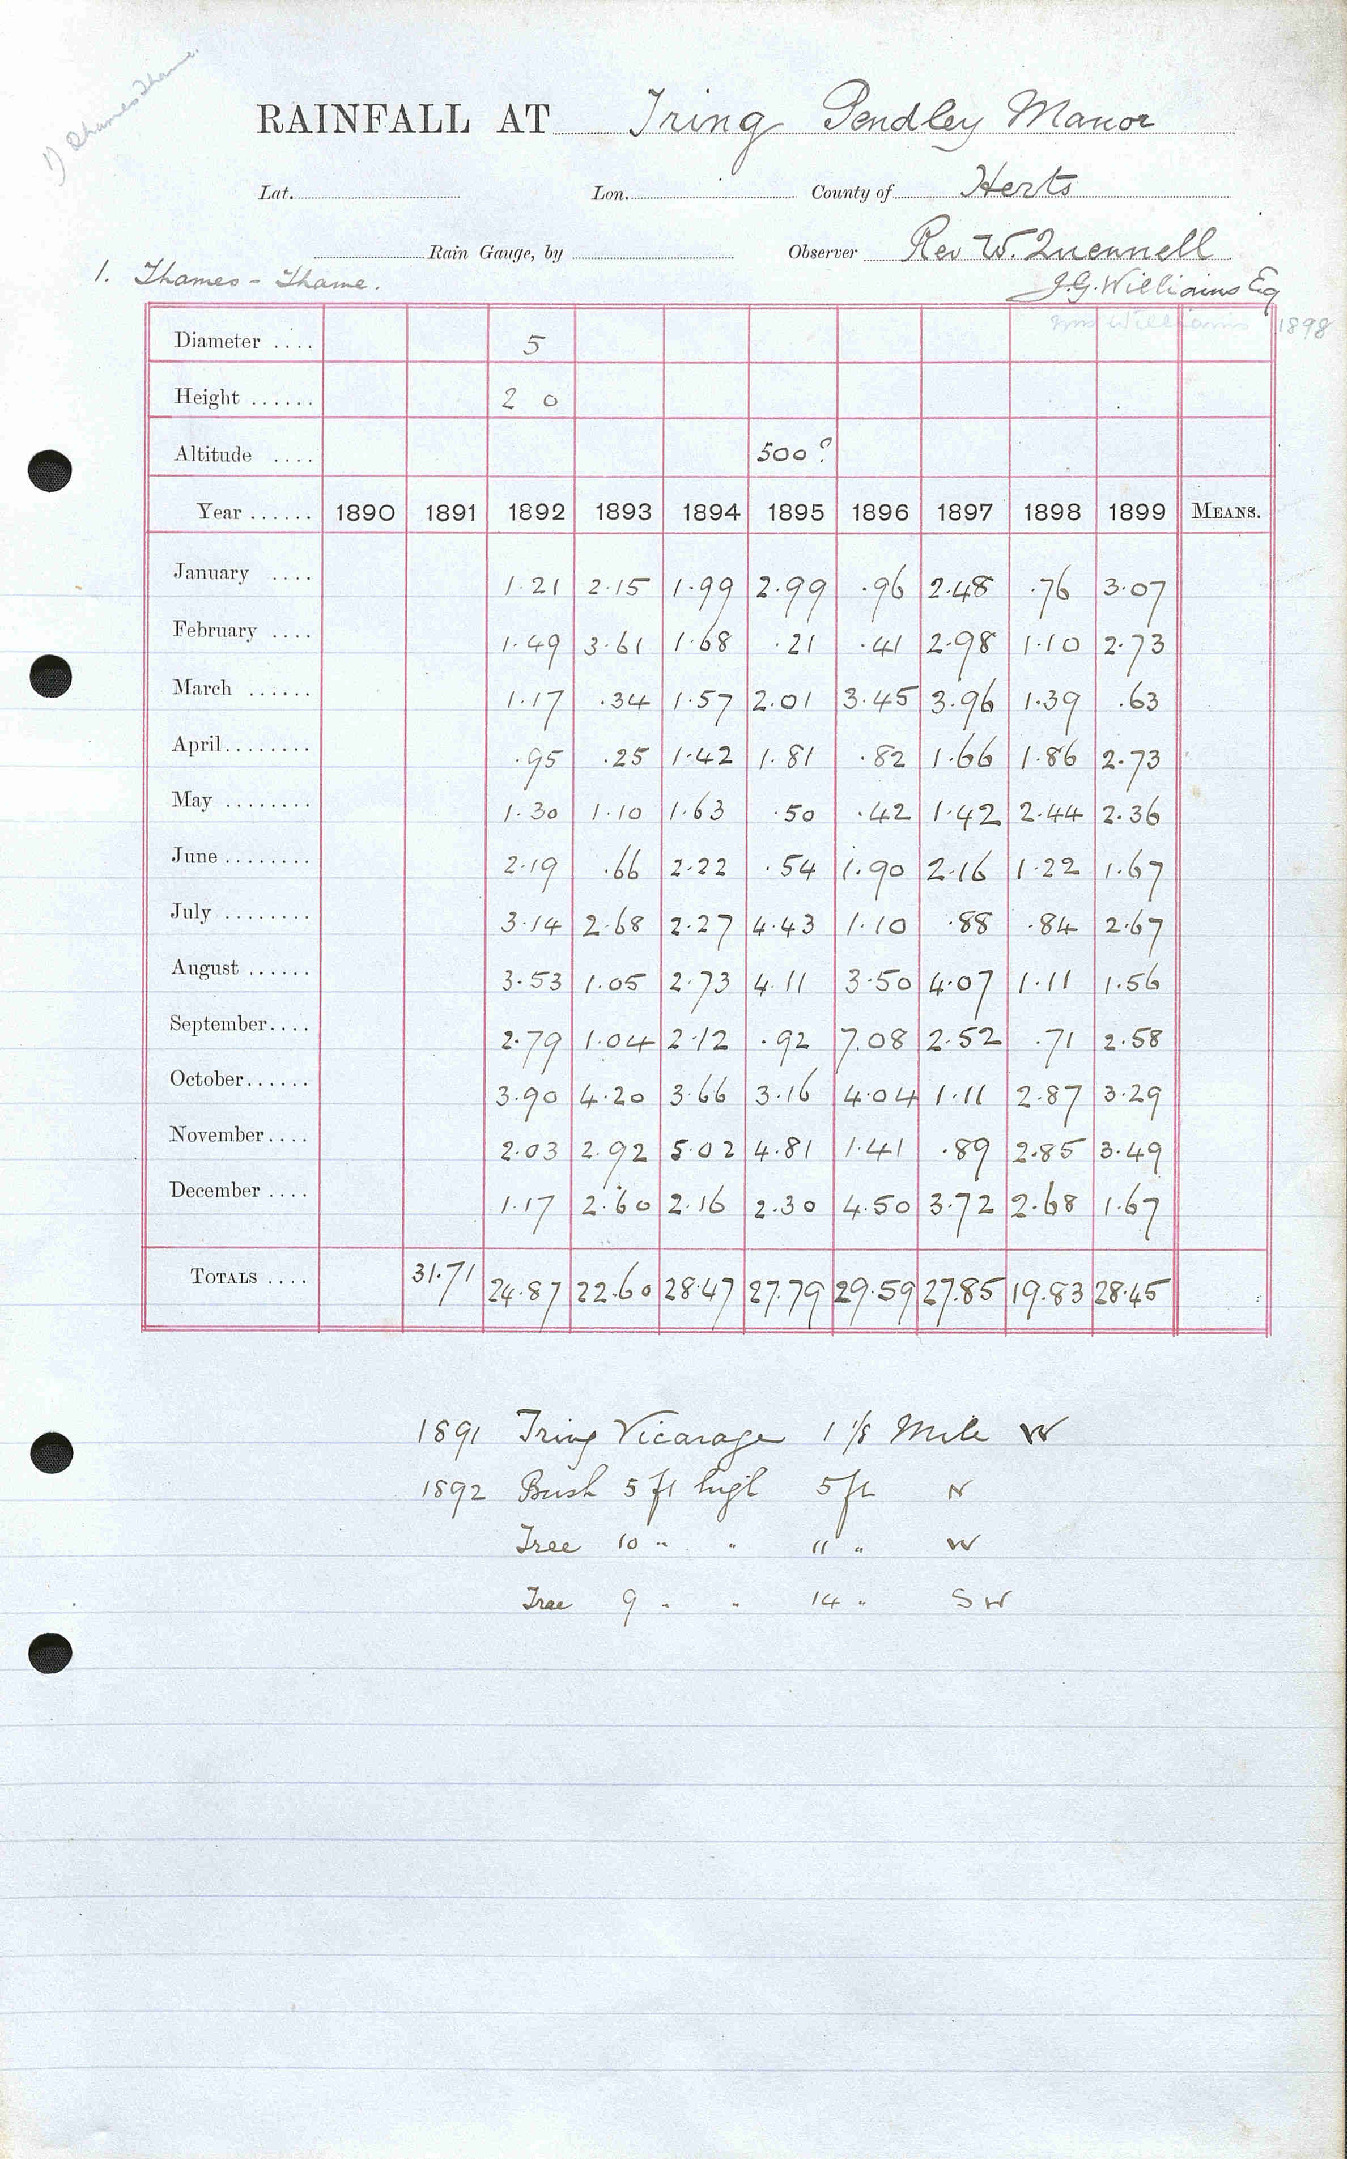 1) Thames Thame.
RAINFALL AT Tring Pendley Manor
Lat. Lon. County of Herts
Rain Gauge, by Observer Rev W. Quennell
1. Thames - Thame. J.G. Williams Esq
Mrs Williams 1898
Diameter .... 5
Height ...... 2 0
Altitude .... 500?
Year ...... 1890 1891 1892 1893 1894 1895 1896 1897 1898 1899 MEANS.
January .... 1.21 2.15 1.99 2.99 .96 2.48 .76 3.07
February .... 1.49 3.61 1.68 .21 .41 2.98 1.10 2.73
March ...... 1.17 .34 1.57 2.01 3.45 3.96 1.39 .63
April........ .95 .25 1.42 1.81 .82 1.66 1.86 2.73
May ........ 1.30 1.10 1.63 .50 .42 1.42 2.44 2.36
June ........ 2.19 .66 2.22 .54 1.90 2.16 1.22 1.67
July ........ 3.14 2.68 2.27 4.43 1.10 .88 .84 2.67
August ...... 3.53 1.05 2.73 4.11 3.50 4.07 1.11 1.56
September.... 2.79 1.04 2.12 .92 7.08 2.52 .71 2.58
October...... 3.90 4.20 3.66 3.16 4.04 1.11 2.87 3.29
November.... 2.03 2.92 5.02 4.81 1.41 .89 2.85 3.49
December .... 1.17 2.60 2.16 2.30 4.50 3.72 2.68 1.67
TOTALS .... 31.71 24.87 22.60 28.47 27.79 29.59 27.85 19.83 28.45
1891 Tring Vicarage 1 1/8 Mile W
1892 Bush 5 ft high 5 ft N
Tree 10 " " 11 " W
Tree 9 " " 14 " SW